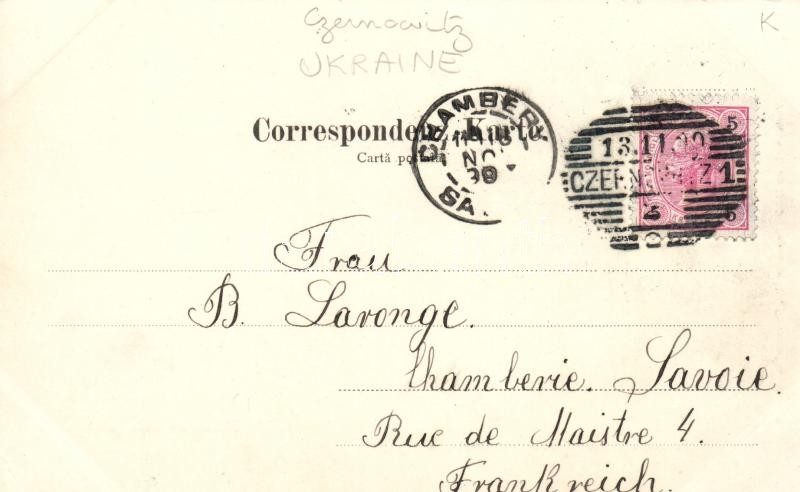 Czernowitz
UKRAINE
K
Correspondenz-Karte
Carta poștală
CHAMBERY
NOV
SA
13.11.99
CZERNOWITZ 1
5
5
Frau
B. Lavonge.
Chamberie. Savoie.
Rue de Maistre 4.
Frankreich.